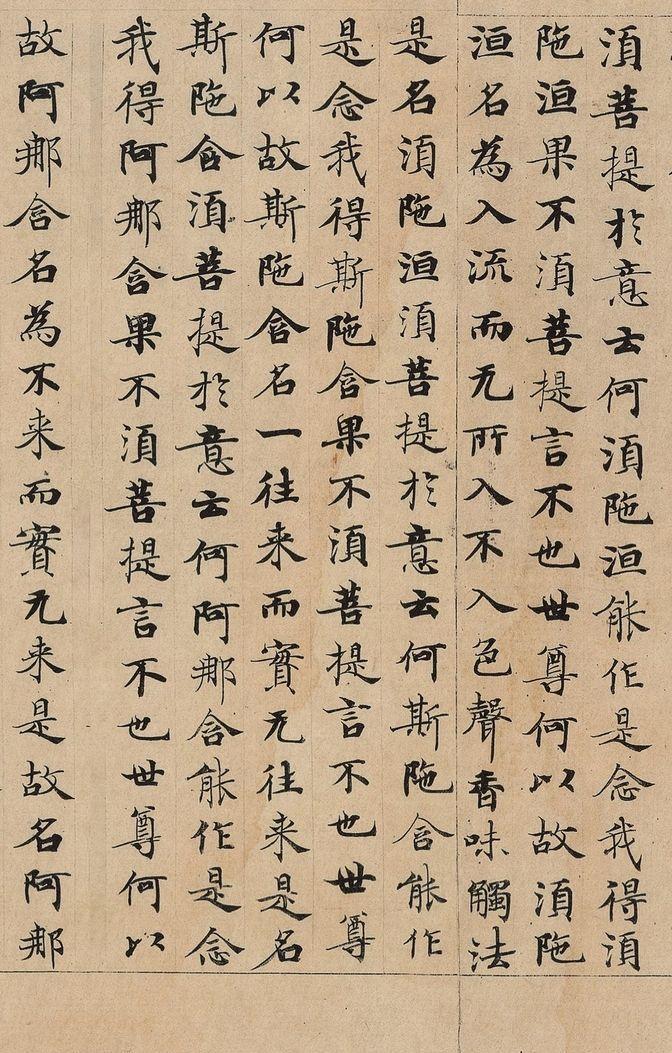 須菩提於意云何須陁洹能作是念我得須
陁洹果不須菩提言不也世尊何以故須陁
洹名為入流而无所入不入色聲香味觸法
是名須陁洹須菩提於意云何斯陁含能作
是念我得斯陁含果不須菩提言不也世尊
何以故斯陁含名一往来而實无往来是名
斯陁含須菩提於意云何阿那含能作是念
我得阿那含果不須菩提言不也世尊何以
故阿那含名為不来而實无来是故名阿那